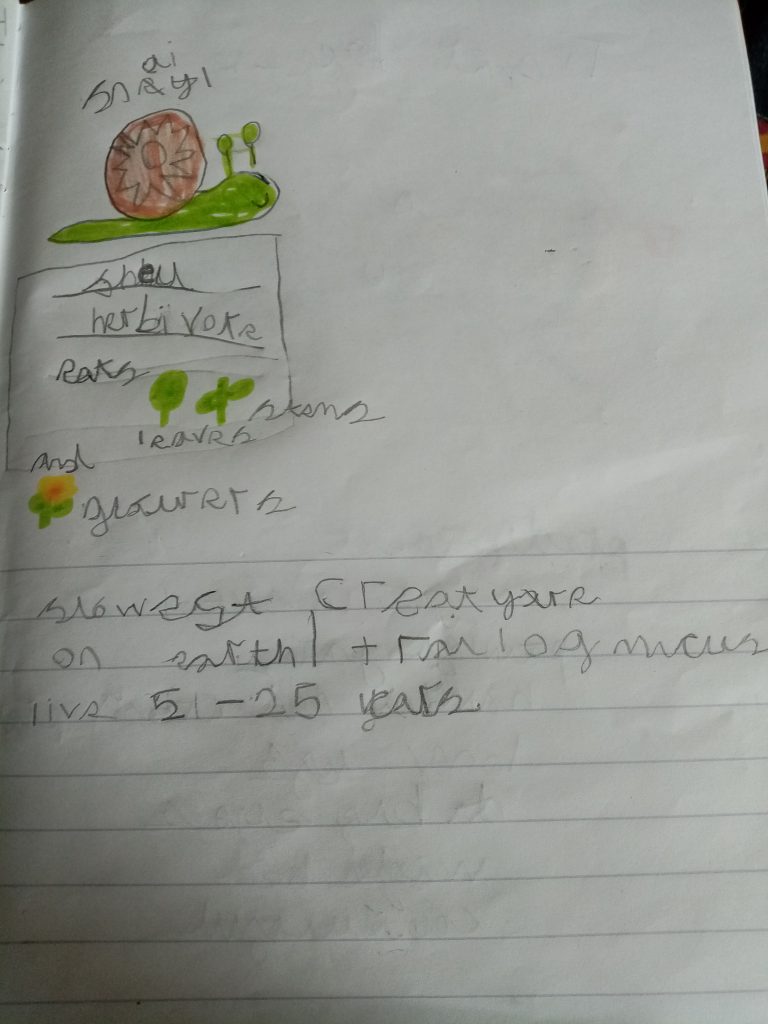 ai
snayl
shell
herbivore
eats
stems
leaves
and
flowers
slowest Creatyure
on earth trail og mucus
live 5-25 years